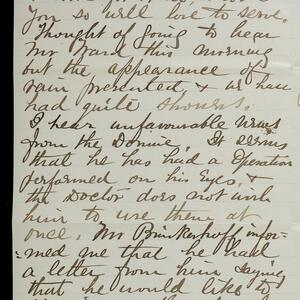 you so will love to serve.
Thought of going to hear
Mr Ward this morning
but the appearance of
rain presented, & we have
had quite showers.
I hear unfavourable news
from the Dominie. It seems
that he has had a Operation
performed on his Eyes, &
the Doctor does not wish
him to use them at
once. Mr Brinkerhoff infor-
med me that he had
a letter from him saying
that he would like to